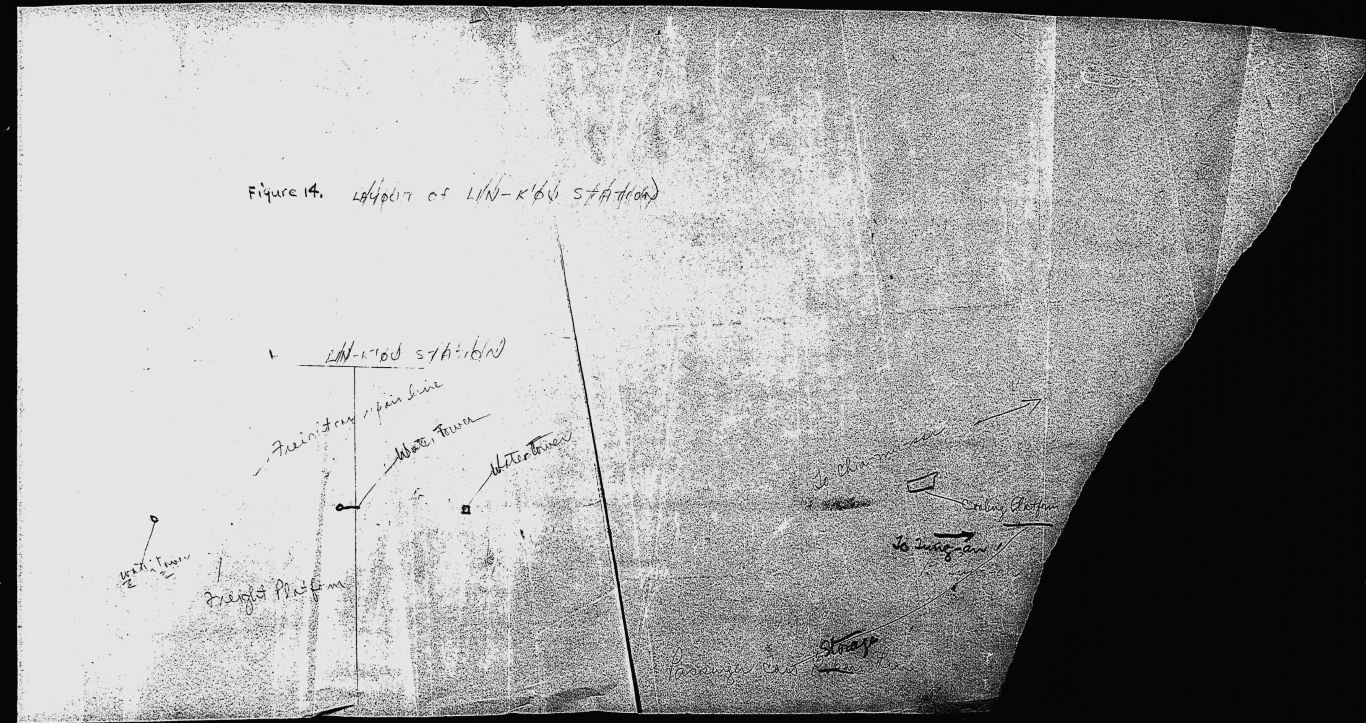 Figure 14. LAYOUT of LIN-K'OU STATION
LIN-K'OU STATION
Freight car repair line
Water Tower
Water Tower
To
Coaling Platform
Water Tower
To
Freight Platform
Storage
Passenger car